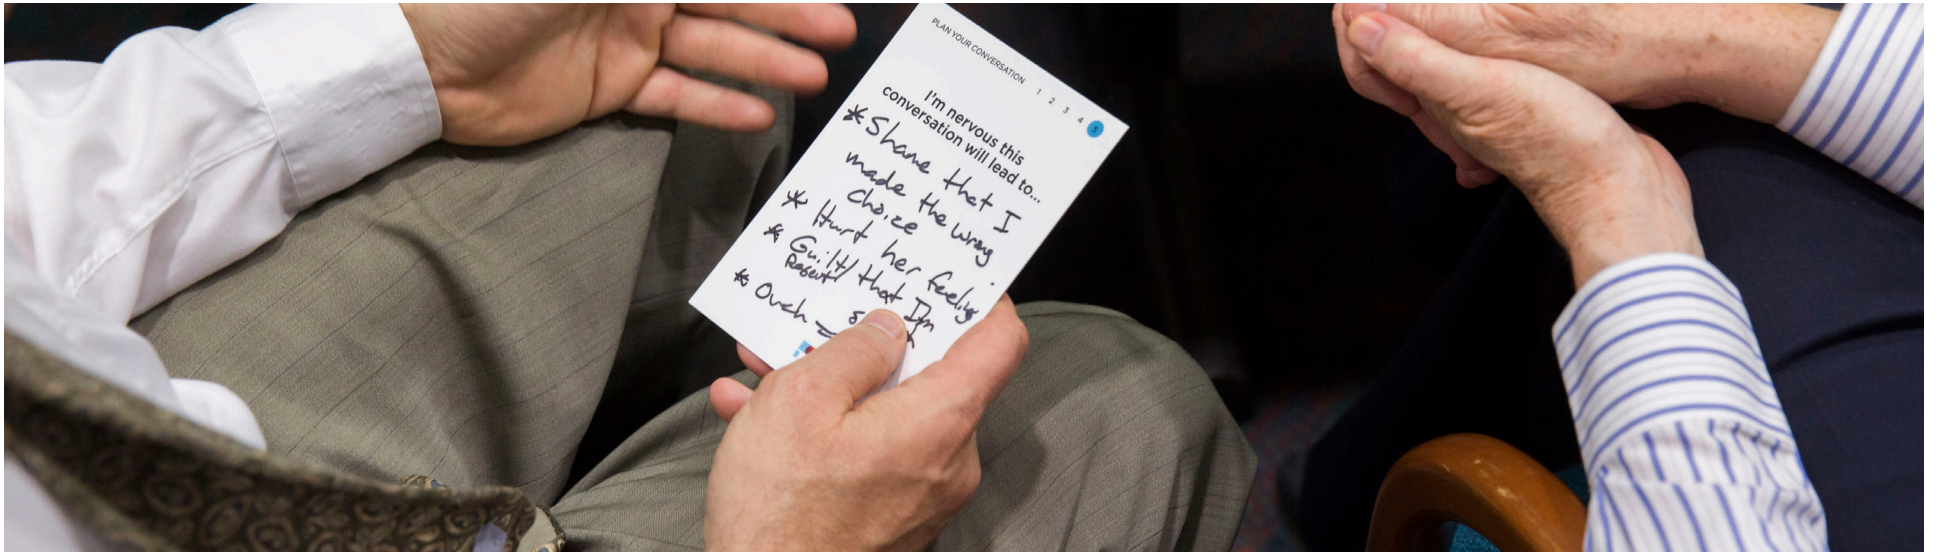 PLAN YOUR CONVERSATION 1 2 3 4 5
I'm nervous this
conversation will lead to...
* Shame that I
made the wrong
choice
* Hurt her feeling
* Guilt/ that I'm
* Ouch